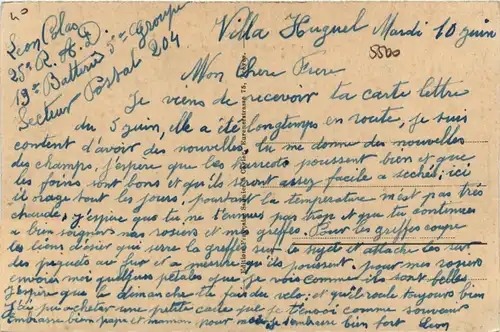 40
Leon Colas
25e R.A.D.
19e Batterie 5e Groupe
Secteur Postal 204
Villa Huguel Mardi 10 juin
5500
Mon Chere Frere
Je viens de recevoir ta carte lettre
du 5 juin, Elle a été longtemps en route, je suis
content d'avoir des nouvelles tu me donne des nouvelles
des champs, j'espére que les haricots poussent bien et que
les foins sont bons et qu'ils seront assez facile a sechés; ici
il orage tout les jours, pourtant la temperature n'est pas trés
chaude, j'espere que tu ne t'ennuies pas trop et que tu continues
a bien soigner nos rosiers et mes greffes. Pour les greffes coupe
les liens d'osier qui serre la greffe sur le sujet et attache les sur
des piquets au fur et a mesure qu'ils poussent, pour mes rosiers
envoies moi quelques petales que je vois comme ils sont belles
j'espére que le dimanche tu fais du velo, et qu'il roule toujours bien
acheter une petite carte que je t'envoi comme souvenir
Embrasse bien papa et maman, pour moi, je t'embrasse bien fort Leon